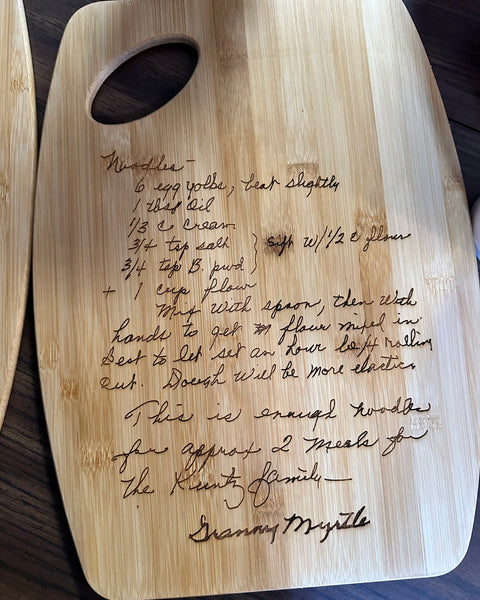 Noodles-
6 egg yolks, beat slightly
1 tbsp Oil
1/3 c Cream
3/4 tsp salt } Sift w/ 1/2 c flour
3/4 tsp B. pwd
+ 1 cup flour
Mix with spoon, then with
hands to get flour mixed in
Best to let set an hour b/4 rolling
out. Dough will be more elastic.
This is enough noodles
for approx 2 meals for
the Kuntz family-
Granny Myrtle